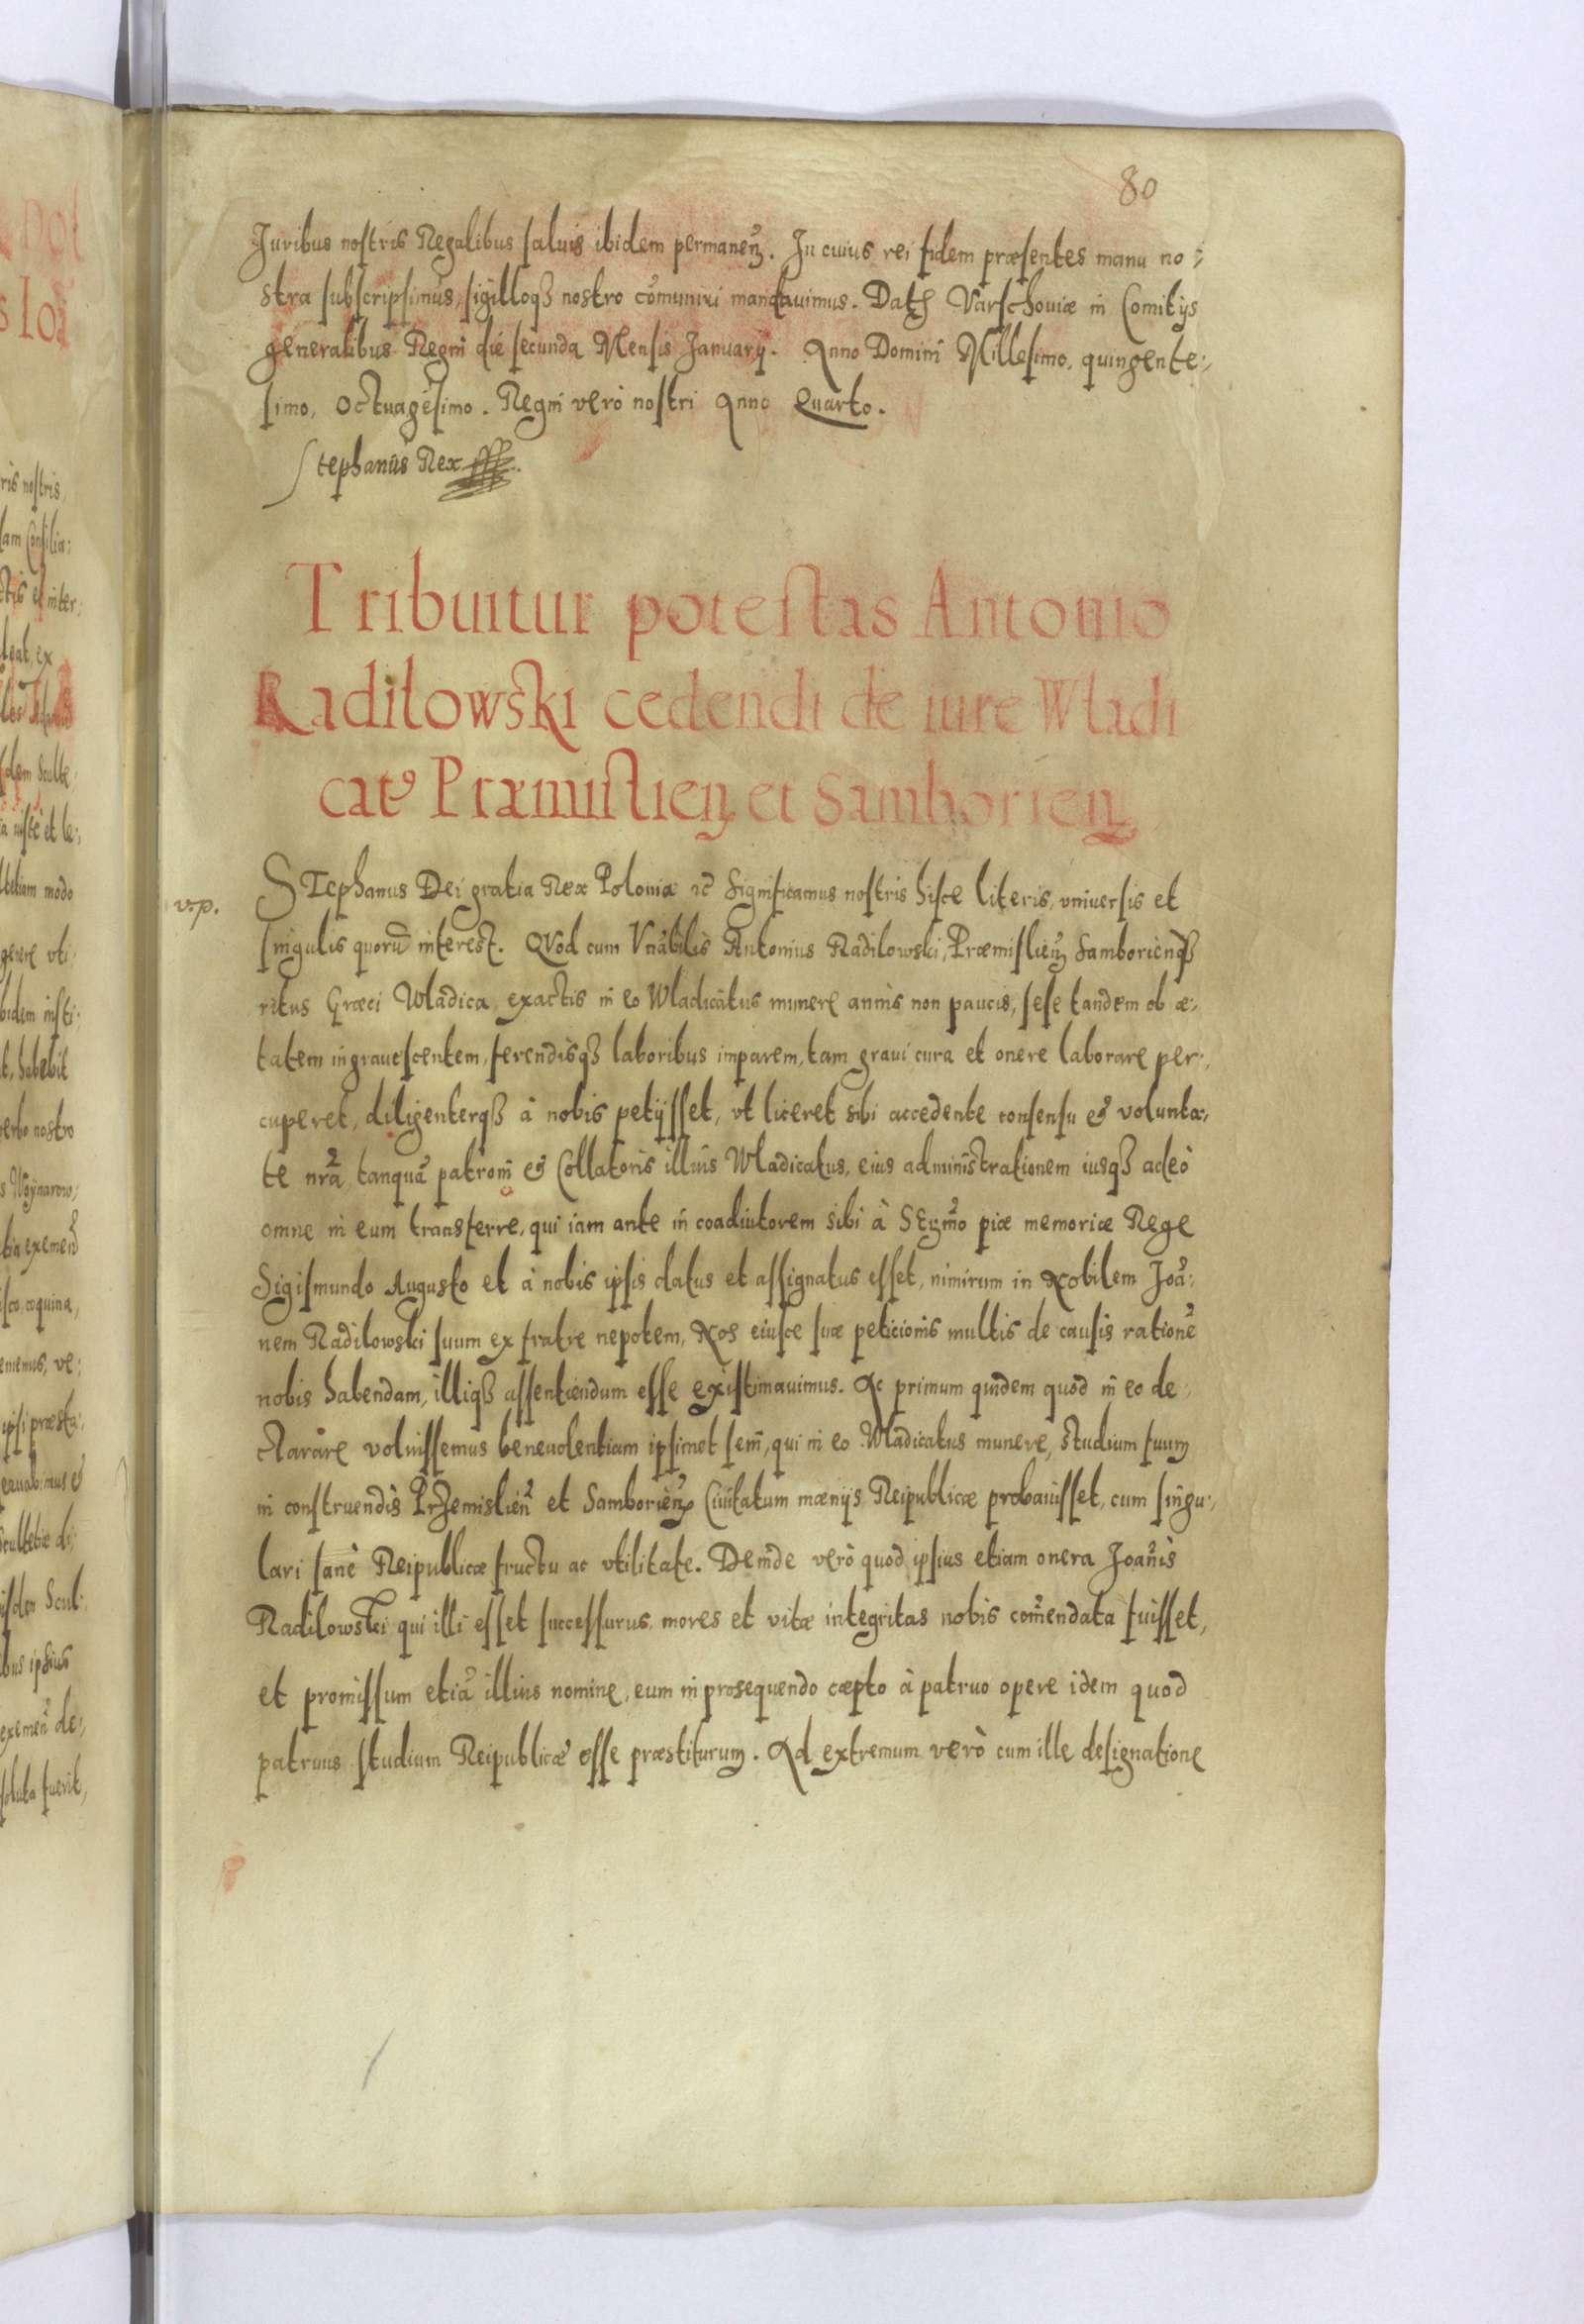 80
Juribus nostris Regalibus saluis ibidem permaneñ. In cuius rei fidem præsentes manu no:
stra subscripsimus, sigilloq̃ nostro cõmuniri mandauimus. Dat Varschouiæ in Comitijs
generalibus Regni die secunda Mensis Januarij. Anno Domini Millesimo, quingente:,
simo, Octuagesimo. Regni verò nostri Anno Quarto.
Stephanus Rex
Tribuitur potestas Antonio
Radilowski cedendi de iure Wladi
catꝰ Præmislieñ et Samborieñ
v.p.
STephanus Dei gratia Rex Poloniæ ꝛc̃ Significamus nostris hisce literis, vniuersis et
singulis quorũ interest. QVod cum Vnãbilis Antonius Radilowski, Præmislieñ Samborienq̃
ritus Græci Wladica, exactis in eo Wladicatus munere annis non paucis, sese tandem ob æ:,
tatem ingrauescentem, ferendisq̃ laboribus imparem, tam graui cura et onere laborare per:,
cuperet, diligenterq̃ à nobis petijsset, vt liceret sibi accedente consensu & volunta:,
te nr̃a, tanquã patroni & Collatoris illius Wladicatus, eius administrationem iusq̃ adeò
omne in eum transferre, qui iam ante in coadiutorem sibi à SErm̃o piæ memoriæ Rege
Sigismundo Augusto et à nobis ipsis datus et assignatus esset, nimirum in Nobilem Joã:,
nem Radilowski suum ex fratre nepotem, Nos eiusce suæ peticionis multis de causis rationẽ
nobis habendam, illiq̃ assentiendum esse existimauimus. Ac primum quidem quod in eo de:,
clarare voluissemus beneuolentiam ipsimet seni, qui in eo Wladicatus munere, studium suum
in construendis Przemislieñ et Samborieñ Ciuitatum mænijs Reipublicæ probauisset, cum singu:,
lari sanè Reipublicæ fructu ac vtilitate. Deinde verò quod ipsius etiam onera Joañis
Radilowski qui illi esset successurus, mores et vitæ integritas nobis com̃endata fuisset,
et promissum etiã illius nomine, eum in prosequendo cæpto à patruo opere idem quod
patruus studium Reipublicæ esse præstiturum. Ad extremum verò cum ille designatione